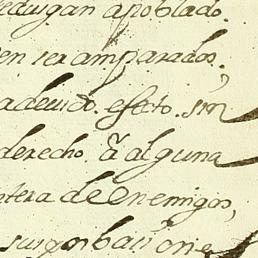 reduzgan a poblado.
en ser amparados.
adeuido. efecto. sin
derecho. â alguna
ntera de enemigos,